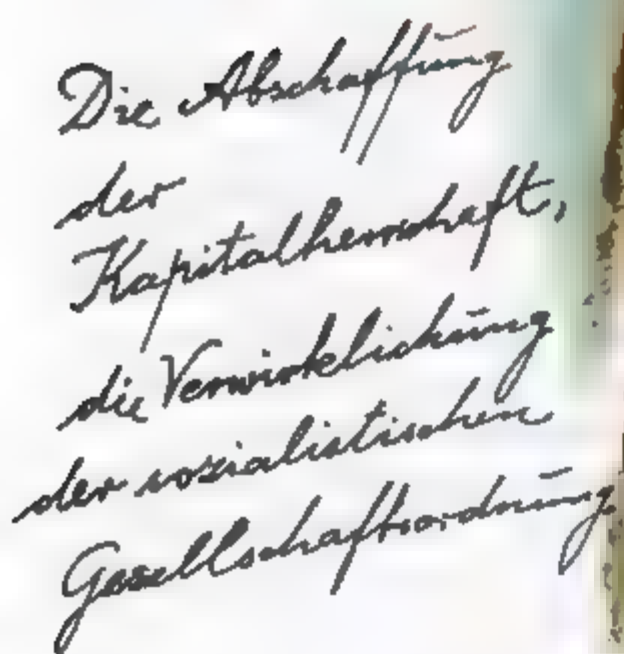 Die Abschaffung
der
Kapitalherrschaft,
die Verwirklichung
der sozialistischen
Gesellschaftsordnung